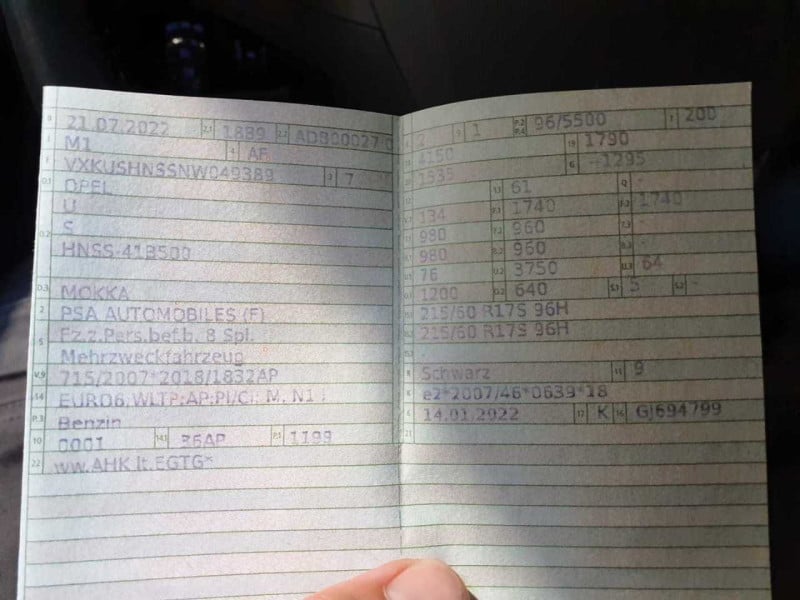 B 21.07.2022 2.1 1889 2.2
J M1 4 AF
E VXKUSHNSSNW049389 3 7
D.1 OPEL
U
S
D.2 HNSS-41B500
D.3 MOKKA
2 PSA AUTOMOBILES (F)
5 Fz.z.Pers.bef.b. 8 Spl.
Mehrzweckfahrzeug
V.9 715/2007*2018/1832AP
14 EURO6;WLTP;AP;PI/CI; M, N1 I
P.3 Benzin
10 0001 14.1 36AP P.1 1199
22 ww.AHK lt.EGTG*
L 2 9 1 P.2 P.4 96/5500 T 200
18 4150 19 1790
20 1535 G -1295
12 13 61 Q -
V.7 134 F.1 1740 F.2 1740
7.1 980 7.2 960 7.3 -
8.1 980 8.2 960 8.3 -
U.1 76 U.2 3750 U.3 64
O.1 1200 O.2 640 S.1 5 S.2 -
15.1 215/60 R17S 96H
15.2 215/60 R17S 96H
15.3 -
R Schwarz 11 9
K e2*2007/46*0639*18
6 14.01.2022 17 K 16 GJ694799
21